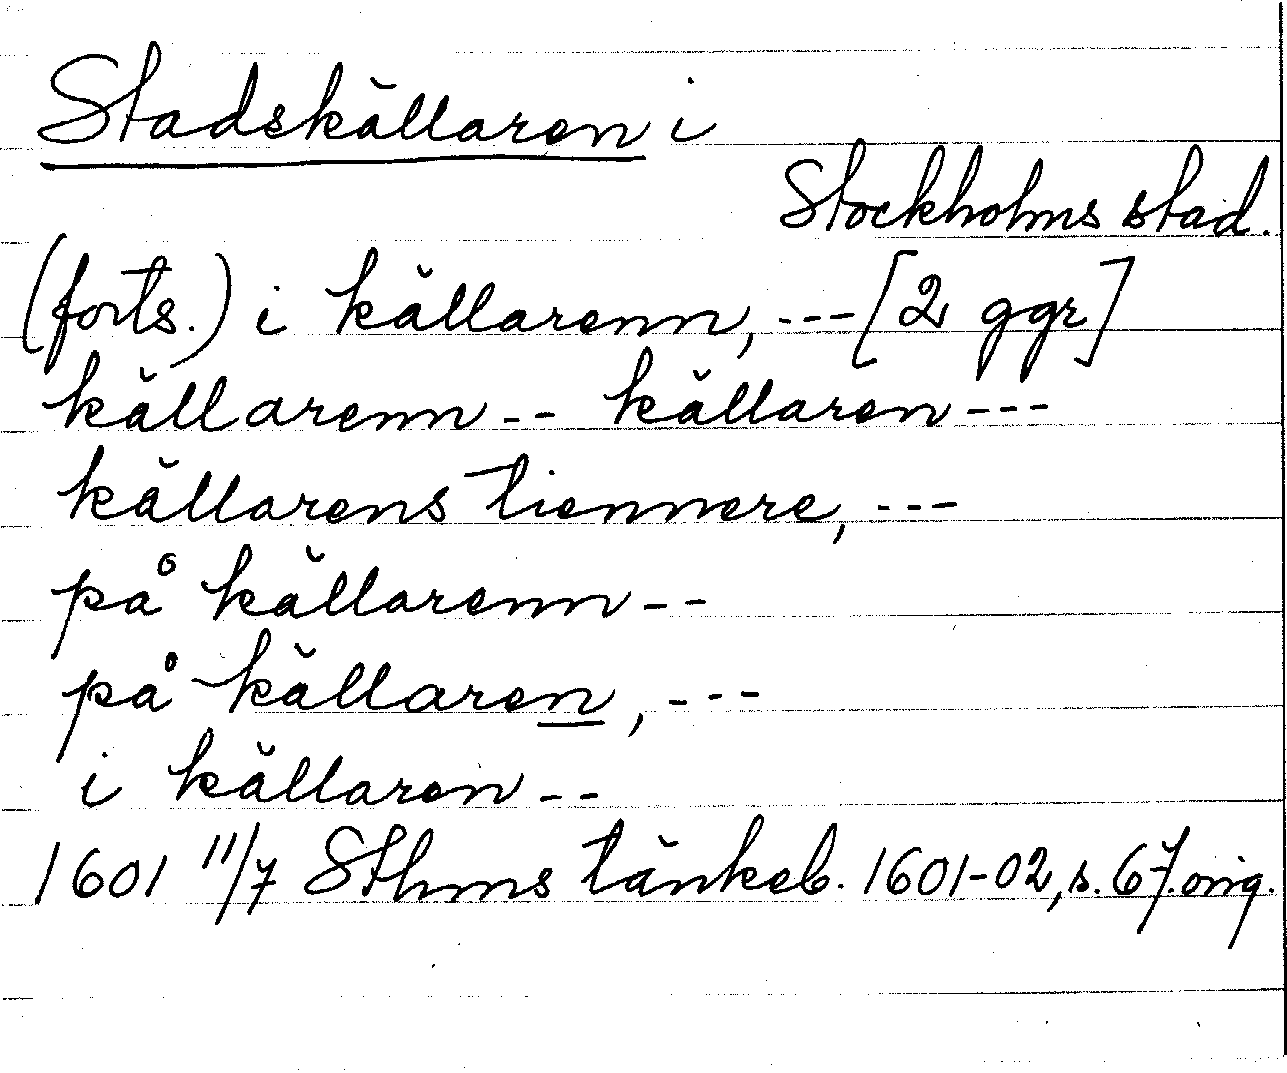 Stadskällaren i
Stockholms stad.
(forts.) i källarenn, --- [2 ggr]
källarenn -- källaren ---
källarens tiennere, ---
på källarenn --
på källaren, ---
i källaren --
1601 11/7 Sthms tänkeb. 1601-02, s. 67. orig.